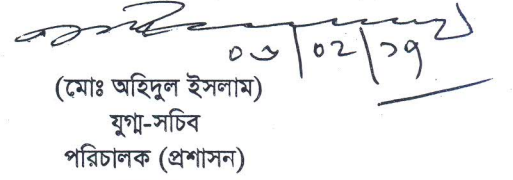 ০৩/০২/১৭
(মোঃ অহিদুল ইসলাম)
যুগ্ম-সচিব
পরিচালক (প্রশাসন)